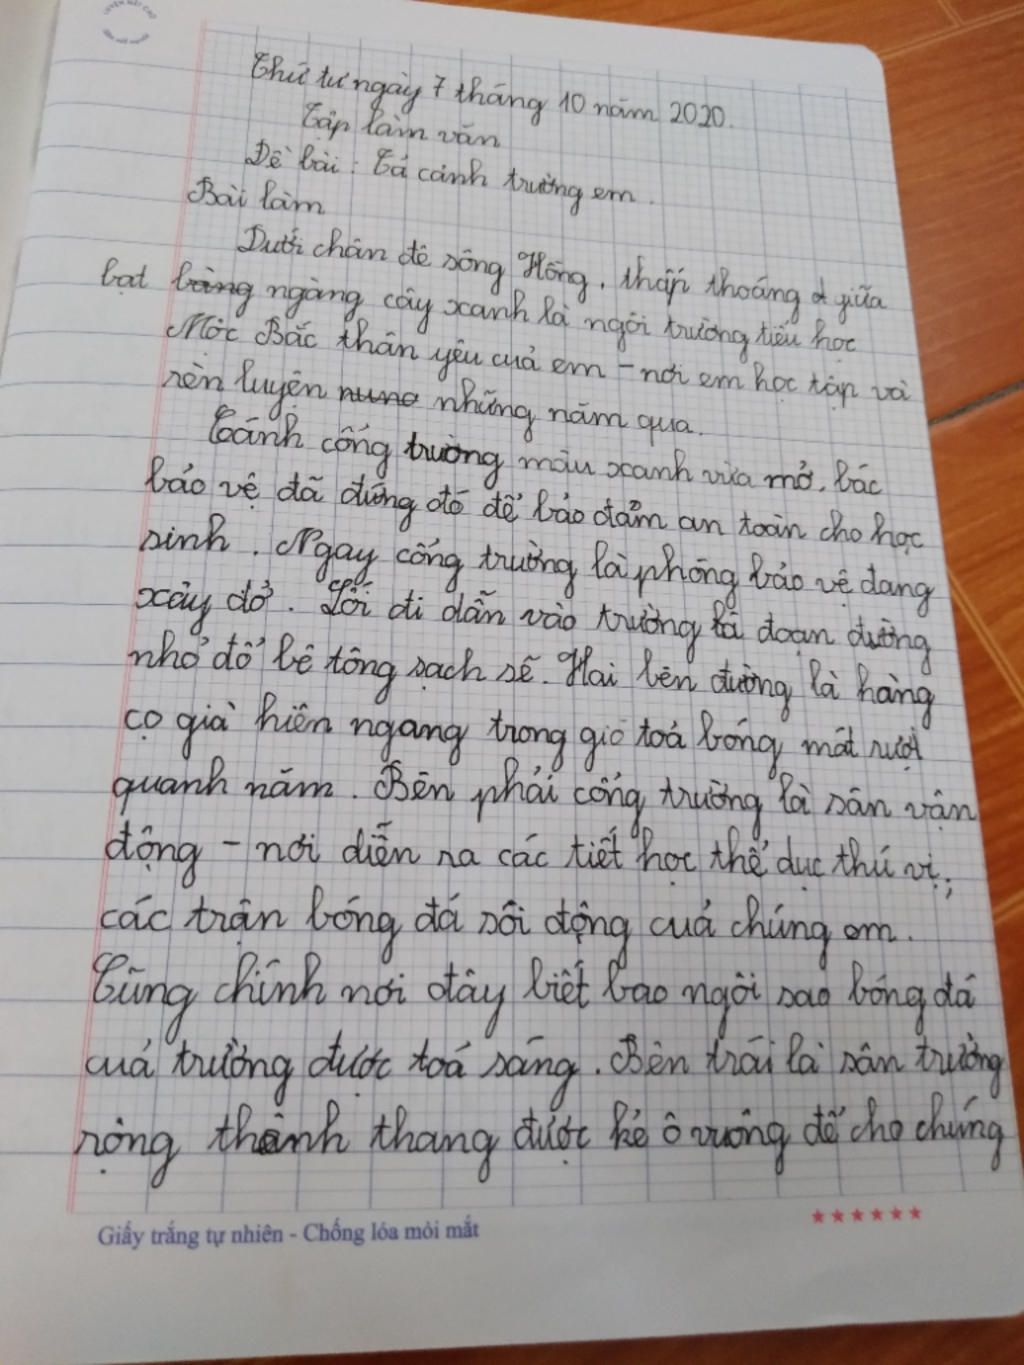 Thứ tư ngày 7 tháng 10 năm 2020.
Tập làm văn
Đề bài: Tả cảnh trường em.
Bài làm
Dưới chân đê sông Hồng, thấp thoáng giữa
bạt ngàng cây xanh là ngôi trường tiểu học
Mộc Bắc thân yêu của em - nơi em học tập và
rèn luyện những năm qua.
Cánh cổng trường màu xanh vừa mở, bác
bảo vệ đã đứng đó để bảo đảm an toàn cho học
sinh. Ngay cổng trường là phòng bảo vệ đang
xây dở. Lối đi dẫn vào trường là đoạn đường
nhỏ đổ bê tông sạch sẽ. Hai bên đường là hàng
cọ già hiên ngang trong gió toả bóng mát rượi
quanh năm. Bên phải cổng trường là sân vận
động - nơi diễn ra các tiết học thể dục thú vị,
các trận bóng đá sôi động của chúng em.
Cũng chính nơi đây biết bao ngôi sao bóng đá
của trường được toả sáng. Bên trái là sân trường
rộng thênh thang được kẻ ô vuông để cho chúng
Giấy trắng tự nhiên - Chống lóa mỏi mắt